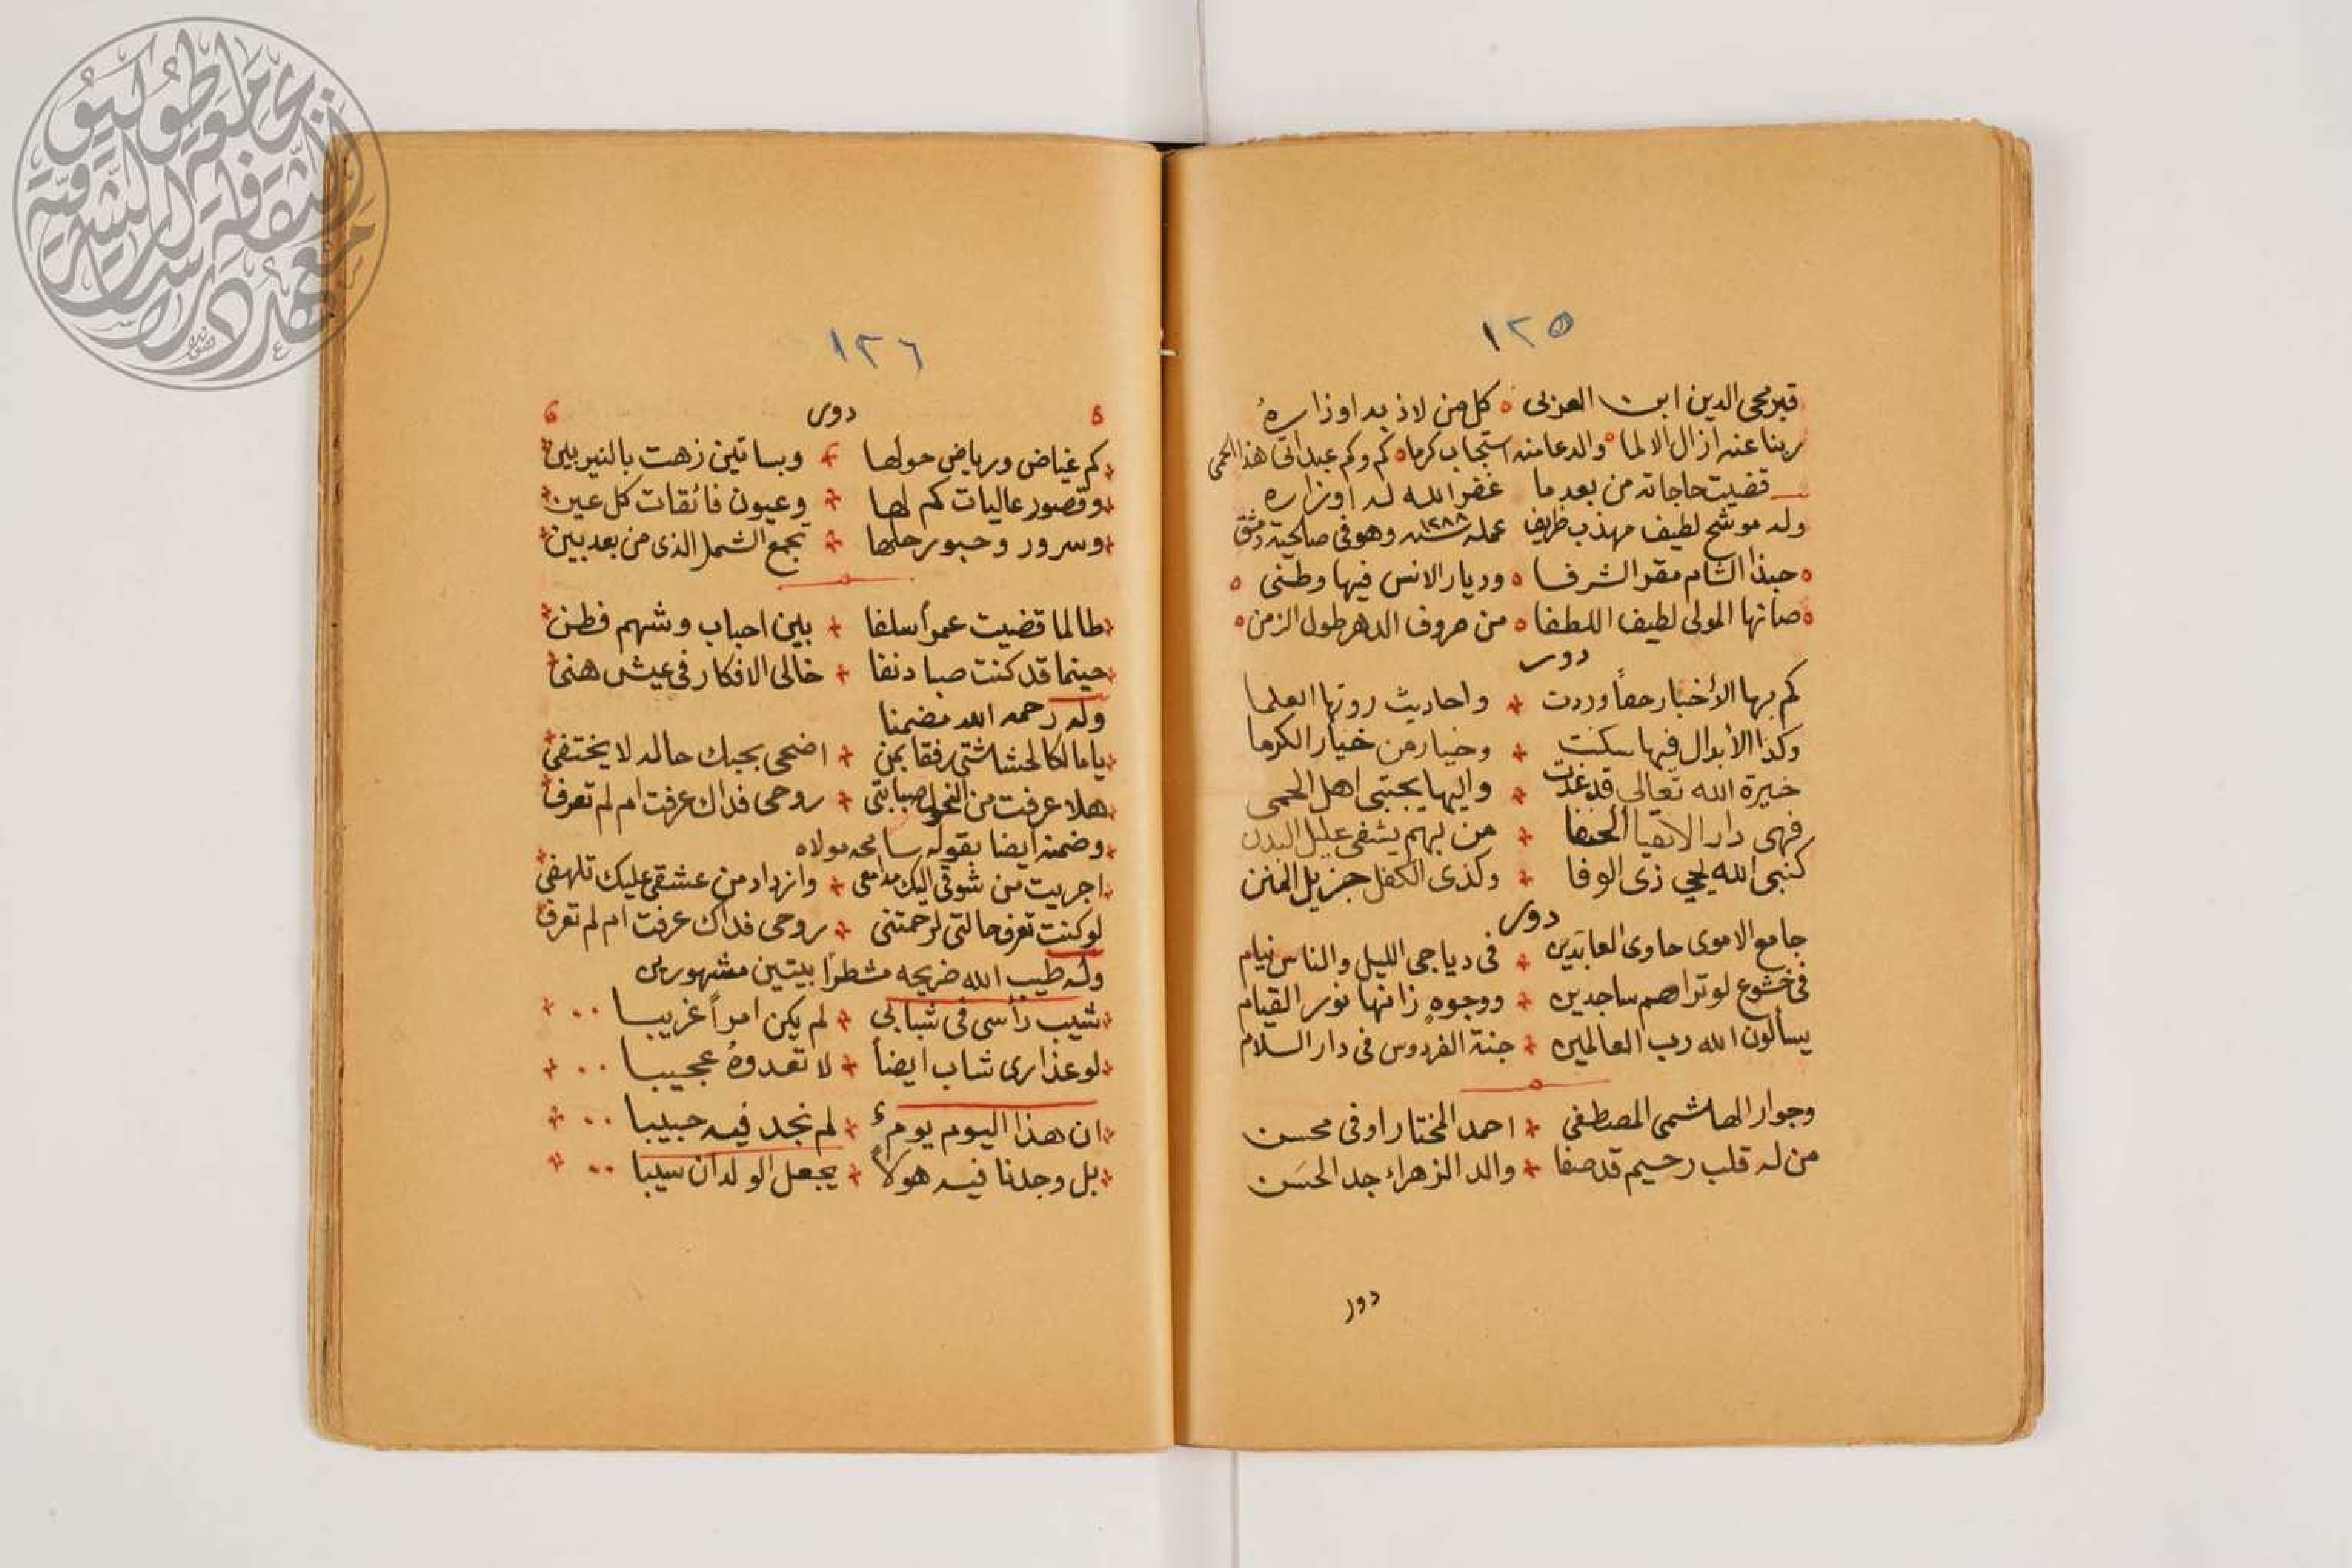 ١٢٥
قبر محيى الدين ابن العربى ° كل من لاذ به اوزاره
ربنا عنه ازال الالما ° والدعا منه استجاب كرما ° كم وكم عبد اتى هذا الحمى
قضيت حاجاته من بعد ما غفر الله له اوزاره
وله موشح لطيف مهذب ظريف عمله سنه ١٢٨٨ وهو فى صالحية دمشق
° حبذا الشام مقر الشرفا ° وديار الانس فيها وطنى °
° صانها المولى لطيف اللطفا ° من صروف الدهر طول الزمن °
دور
كم بها الأخبار حقاً وردت * واحاديث روتها العلما
وكذا الأبدال فيها سكنت * وخيار من خيار الكرما
خيرة الله تعالى قد غدت * واليها يجتبى اهل الحمى
فهى دار الاتقيا الحنفا * من بهم يشفى عليل البدن
كنبى الله يحيى ذى الوفا * وكذى الكفل جزيل المنن
دور
جامع الاموى حاوى العابدين * فى دياجى الليل والناس نيام
فى خشوع لو تراهم ساجدين * ووجوهٍ زانها نور القيام
يسألون الله رب العالمين * جنة الفردوس فى دار السلام
وجوار الهاشمى المصطفى * احمد المختار اوفى محسن
من له قلب رحيم قد صفا * والد الزهراء جد الحسَن
دور
١٢٦
دور
* كم غياض ورياض حولها * وبساتين زهت بالنيربين *
* وقصور عاليات كم لها * وعيون فائقات كل عين *
* وسرور وحبور حلها * تجمع الشمل الذى من بعد بين *
* طالما قضيت عمراً سلفا * بين احباب وشهم فطن *
* حينما قد كنت صبا دنفا * خالى الافكار فى عيش هنى *
وله رحمه الله مضمنا
* يا مالكا لحشاشتى رفقا بمن * اضحى بحبك حاله لا يختفى *
* هلا عرفت من النحول صبابتى * روحى فداك عرفت ام لم تعرف *
* وضمنه ايضا بقوله سامحه مولاه
* اجريت من شوقى اليك مدامعى * وازداد من عشقى عليك تلهفى *
لو كنت تعرف حالتى لرحمتنى * روحى فداك عرفت ام لم تعرف *
وله طيب الله ضريحه مشطراً بيتين مشهورين
* شيب رأسى فى شبابى * لم يكن امراً غريبا ٠٠ *
* لو عذارى شاب ايضاً * لا تعدوهُ عجيبا ٠٠ *
* ان هذا اليوم يومء * لم نجد فيه حبيبا ٠٠ *
* بل وجدنا فيه هولاً * يجعل الولدان شيبا ٠٠ *